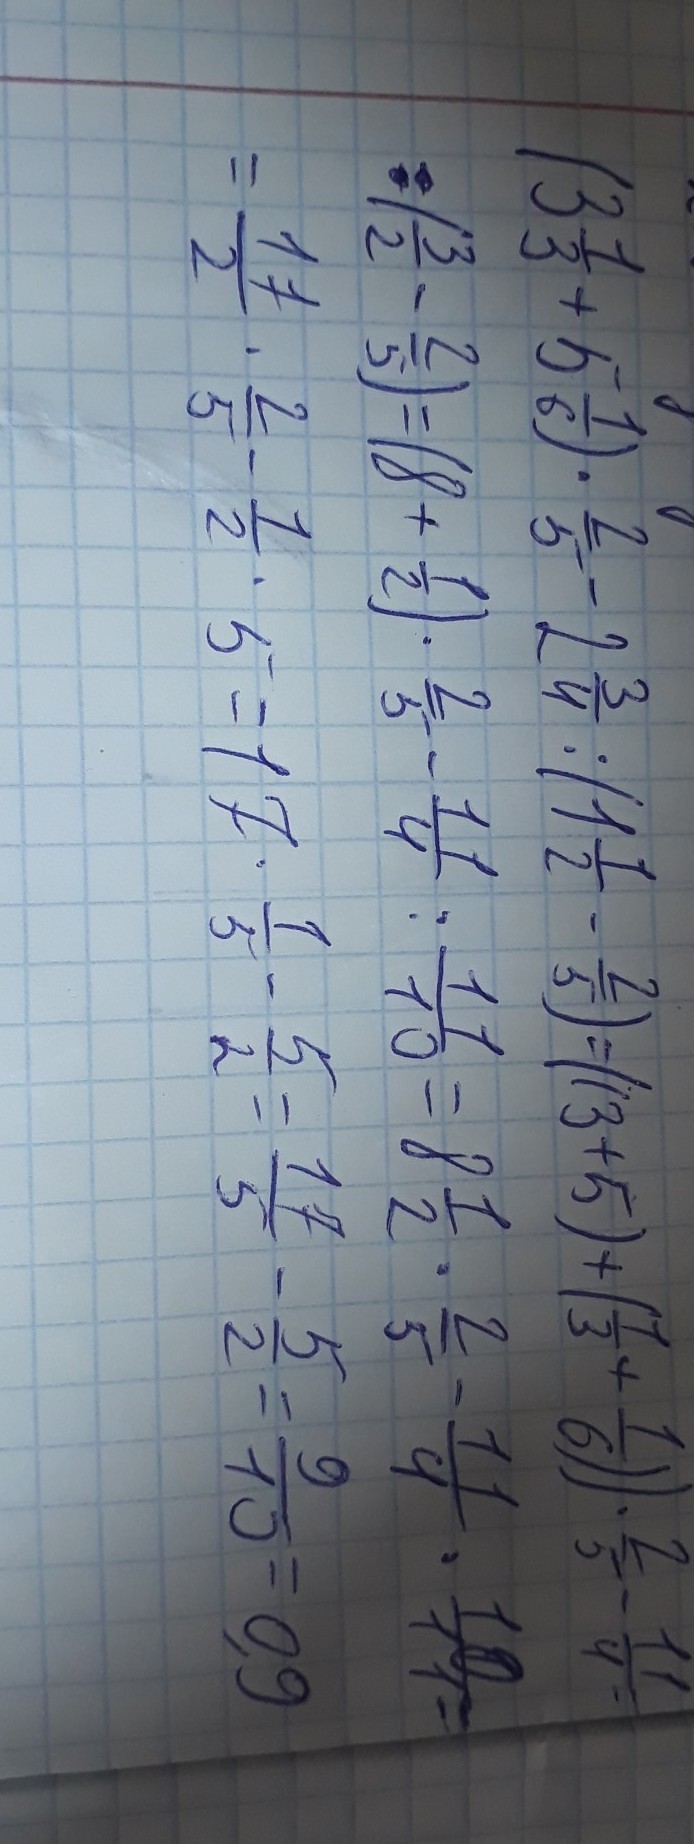 (3 1/3 + 5 1/6) · 2/5 - 2 3/4 : (1 1/2 - 2/5) = ((3+5) + (1/3 + 1/6)) · 2/5 - 11/4 :
: (3/2 - 2/5) = (8 + 1/2) · 2/5 - 11/4 : 11/10 = 8 1/2 · 2/5 - 11/4 · 10/11 =
= 17/2 · 2/5 - 1/2 · 5 = 17 · 1/5 - 5/2 = 17/5 - 5/2 = 9/10 = 0,9